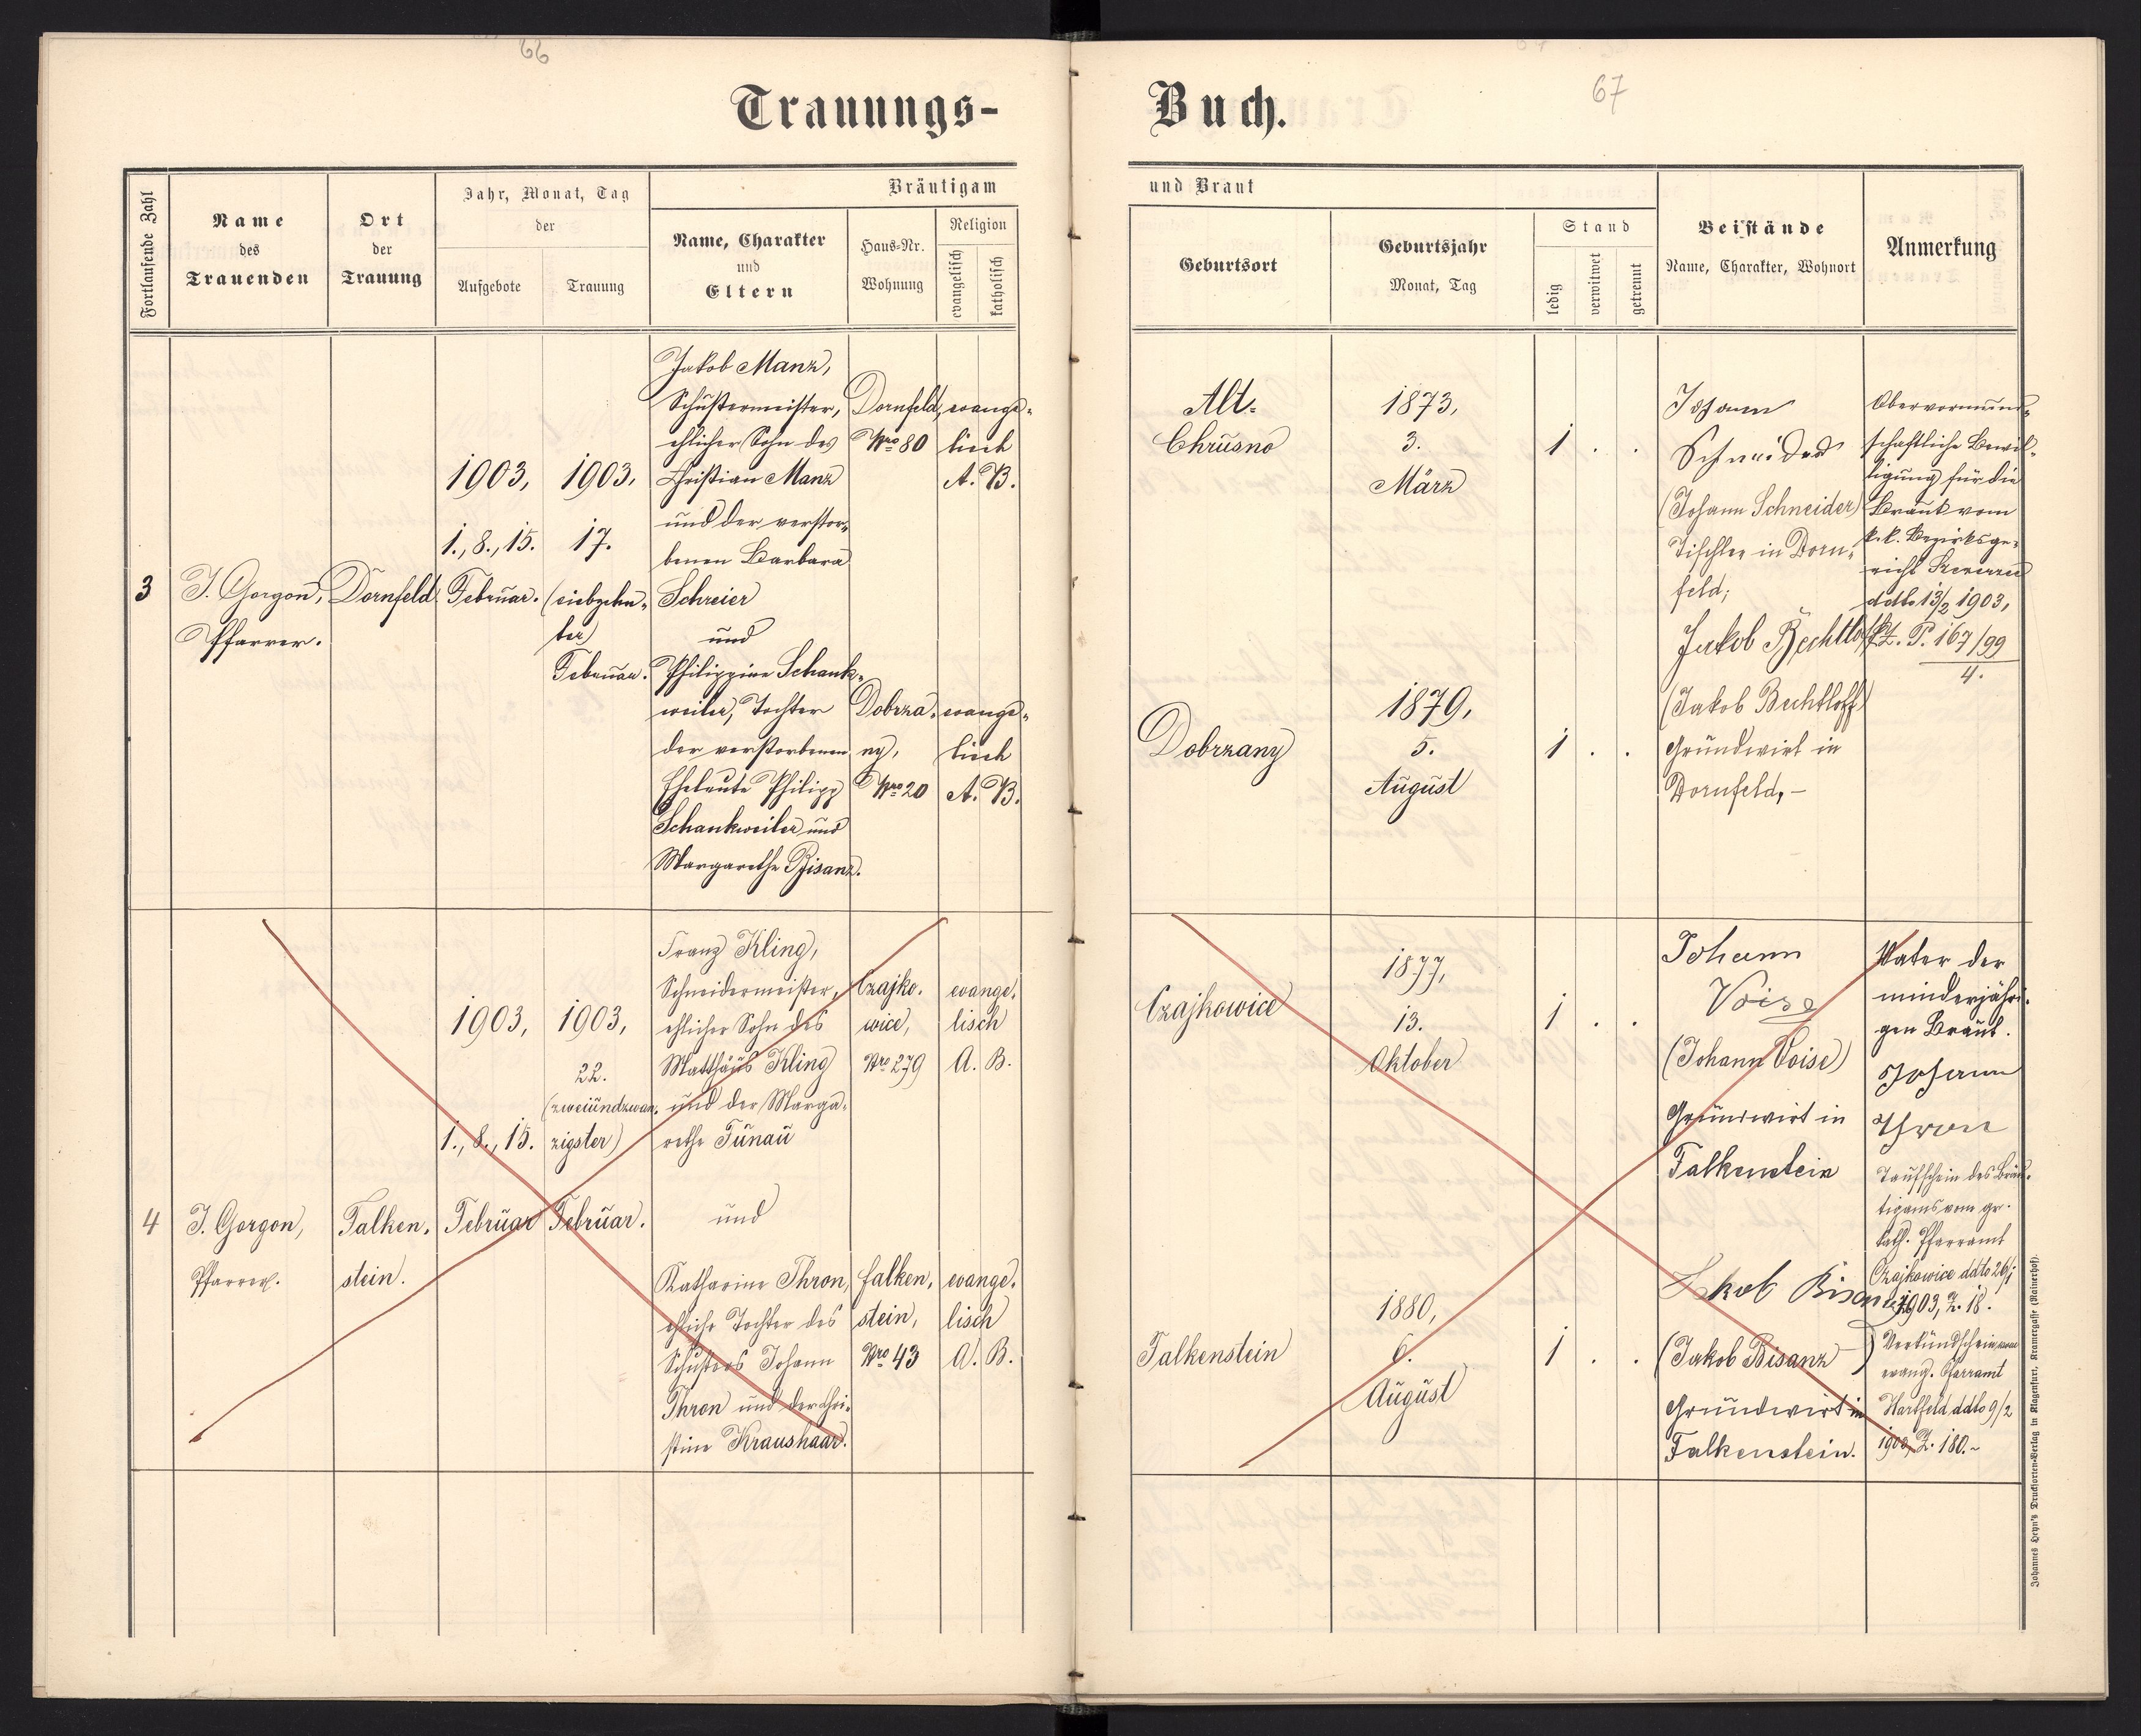 66
67
Trauungs-
Buch.
Fortlaufende Zahl
Name
des
Trauenden
Ort
der
Trauung
Jahr, Monat, Tag
der
Aufgebote
Trauung
Bräutigam
Name, Charakter
und
Eltern
Haus-Nr.
Wohnung
Religion
evangelisch
katholisch
und Braut
Geburtsort
Geburtsjahr
Monat, Tag
Stand
ledig
verwitwet
getrennt
Beistände
Name, Charakter, Wohnort
Anmerkung
3
J. Gorgon,
Pfarrer.
Dornfeld.
1903,
1., 8., 15.
Februar.
1903.
17.
(siebzehn-
ter)
Februar.
Jakob Manz,
Schustermeister,
ehlicher Sohn des
Christian Manz
und der verstor-
benen Barbara
Schreier
und
Philippine Schank-
weiler, Tochter
der verstorbenen
Eheleute Philipp
Schankweiler und
Margarethe Bisanz.
Dornfeld,
Nro 80
evange-
lisch
A. B.
Dobrza-
ny,
Nro 20
evange-
lisch
A. B.
Alt-
Chrusno
1873,
3.
März
1 . .
Dobrzany
1879,
5.
August
1 . .
Johann
Schneider
(Johann Schneider)
Tischler in Dorn-
feld;
Jakob Bechtloff
(Jakob Bechtloff)
Grundwirt in
Dornfeld, –
Obervormund-
schaftliche Bewil-
ligung für die
Braut vom
k. k. Bezirksge-
richt Szczerzec
ddto 13/2 1903,
P. 167/99
4.
4
J. Gorgon,
Pfarrer.
Falken-
stein.
1903,
1., 8., 15.
Februar
1903,
22.
(zweiundzwan-
zigster)
Februar.
Franz Kling,
Schneidermeister,
ehlicher Sohn des
Matthäus Kling
und der Marga-
rethe Tunau
und
Katharine Thron,
ehliche Tochter des
Schusters Johann
Thron und der Chri-
stine Kraushaar.
Czajko-
wice,
Nro 279
evange-
lisch
A. B.
Falken-
stein,
Nro 43
evange-
lisch
A. B.
Czajkowice
1877,
13.
Oktober
1 . .
Falkenstein
1880,
6.
August
1 . .
Johann
Voise
(Johann Voise)
Grundwirt in
Falkenstein
Jakob Bisanz
(Jakob Bisanz)
Grundwirt in
Falkenstein.
Vater der
minderjähri-
gen Braut.
Johann
Thron
Taufschein des Bräu-
tigams vom gr.
kath. Pfarramt
Czajkowice ddto 26/1
1903, Z. 18.
Verkündschein vom
evang. Pfarramt
Hartfeld ddto 9/2
1903, Z. 180.–
Johannes Heyn's Drucksorten-Verlag in Klagenfurt, Kramergasse (Rainerhof).